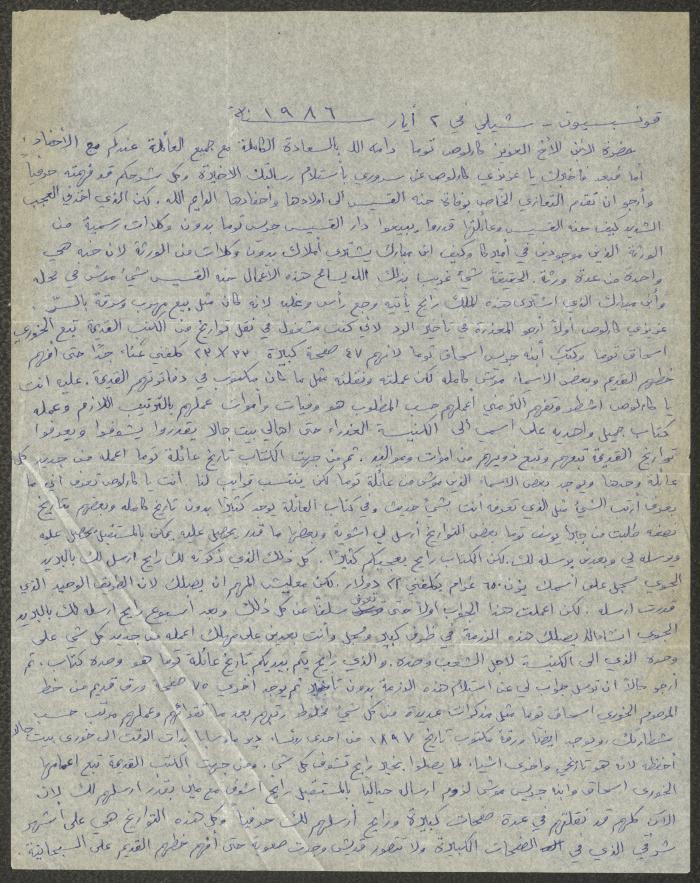 قونسبسيون - شيلي في ٢ أيار سنة ١٩٨٦
حضرة الابن للأخ العزيز كارلوس توما دامه الله بالسعادة الكاملة مع جميع العائلة عندكم مع الأحفاد
أما بعد يا عزيزي كارلوص عن سروري بأستلام رسالتك الاخيرة وكل شرحكم قد فهمته حرفياً
وأرجو ان تقدم التعازي الخاص بوفاة حنه القسيس الى اولادها وأحفادها الدايم الله. لكن الذي اخذني العجب
الشديد كيف حنه القسيس وعائلتها قدروا يبيعوا دار القسيس جريس توما بدون وكلات رسمية من
الورثة الذين موجودين في أمركا وكيف ابن مبارك يشتري أملاك بدون وكلات من الورثة لان حنه هي
واحدة من عدة ورثة. الحقيقة شيء غريب بذلك الله يسامح هذه الأعمال حنه القسيس شيء موش في محله
وأبن مبارك الذي اشترى هذه الملك رايح يأتيه وجع رأس وغلبه لانه كان مثل بيع مهروب وسرقة بالسرّ.
عزيزي كارلوص أولاً أرجو المعذرة في تأخير الرد لاني كنت مشغول في نقل تواريخ من الكتب القديمة تبع الخوري
اسحاق توما وكتب أبنه جريس اسحاق توما لانهم ٤٧ صفحة كبيرة ٣٣ X ٢٣ كلفني عناء جداً حتى افهم
خطهم القديم وبعض الاسماء موش كامله لكن عملته ونقلته مثل ما كان مكتوب في دفاترهم القديمة. عليه انت
يا كارلوص اشطر وتفهم اللازمني أعملهم حسب المطلوب هو وفيات وأموات عملهم بالترتيب اللازم وعمله
كتاب جميل واهديه على أسمي الى الكنيسة العذراء حتى اهالي بيت جالا يقدروا يشوفوا ويعرفوا
تواريخ القديمة تبعهم وتبع ذويهم من اموات ومواليد. ثم من جهت الكتاب تاريخ عائلة توما اعمله من جديد كل
عائلة وحدها ويوجد بعض الاسماء الذين موش من عائلة توما لكن بنتسب قرايب لنا أنت يا كارلوص تعرف اني ما
بعرف أرتب الشيء مثل الذي تعرفه أنت بشيء حديث وفي كتاب العائلة يوجد كثيراً بدون تاريخ كامله وبعضهم بتاريخ
نصفه طلبت من جالا يوسف توما بعض التواريخ أرسل لي اشويه وبعضها ما قدر يحصل عليه يمكن بالمستقبل يحصل عليه
ويرسله لي وبعدين برسله لك. لكن الكتاب رايح يعجبكم كثيراً. كل ذلك الذي ذكرته لك رايح ارسل لك بالبريد
الجوي مسجل على أسمك يزن ٦٥٠ غرام يكلفني ٢٢ دولار. لكن معليش المهم ان يصلك لان الطريق الوحيد الذي
قدرت ارسله. لكن اعملت هذا الجواب اولاً حتى تعرف سلفاً عن كل ذلك وبعد أسبوع رايح ارسله لك بالبريد
الجوي انشاءالله يصلك هذه الرزمة في ظرف كبير ومسجل وأنت بعدين على مهلك اعمله من جديد كل شيء على
وحده الذي الى الكنيسة لاجل الشعب وحده. والذي رايح يتم بيديكم تاريخ عائلة توما هو وحده كتاب. ثم
أرجو حالاً ان ترسل جواب لي عن استلام هذه الرزمة بدون تأخير ثم يوجد أخرى ٧٥ صفحة ورق قديم من خط
المرحوم الخوري اسحاق توما مثل مذكرات عديدة من كل شيء مخلوط رتبهم بعد ما تقرأهم وعملهم مرتب حسب
شطارتك. ويوجد ايضاً ورقة مكتوب تاريخ ١٨٩٧ من احدى رؤساء دير مارسابا بذات الوقت الى خوري بيت جالا
أحفظه لانه هو تاريخي واخرى اشياء لما يصلوا بخير رايح تشوف كل شيء. ومن جهت الكتب القديمة تبع اعمامها
الخوري اسحاق وابنه جريس موش لزوم ارسال حالياً بالمستقبل رايح اشوف مع مين بقدر أرسلهم لك لان
الان كلهم قد نقلتهم في عدة صفحات كبيرة ورايح أرسلهم لك حرفياً وكل هذه التواريخ هي على أشهر
شرقي الذي في الصفحات الكبيرة ولا تتصور قديش وجدت صعوبة حتى أفهم خطهم القديم على السبحانية